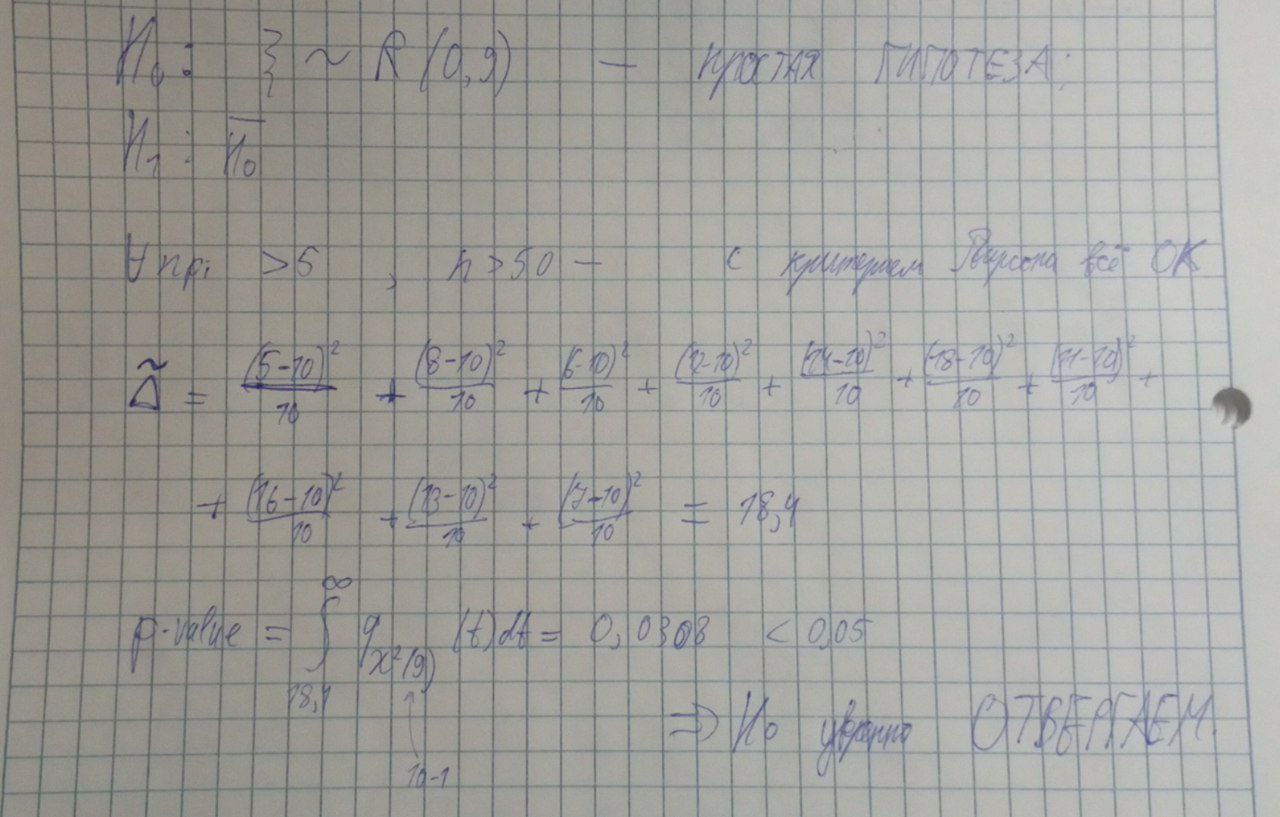 H₀: ξ ~ R(0,9) — простая ГИПОТЕЗА;
H₁: H̅₀
∀ npᵢ >5 , n>50 — с критерием Пирсона всё ОК
Δ̃ = (5-10)²/10 + (8-10)²/10 + (6-10)²/10 + (12-10)²/10 + (14-10)²/10 + (18-10)²/10 + (11-10)²/10 +
+ (16-10)²/10 + (13-10)²/10 + (7-10)²/10 = 18,4
p-value = ∫₁₈,₄^∞ q_χ²(9) (t)dt = 0,0308 < 0,05
10-1
⇒ H₀ уверенно ОТВЕРГАЕМ.